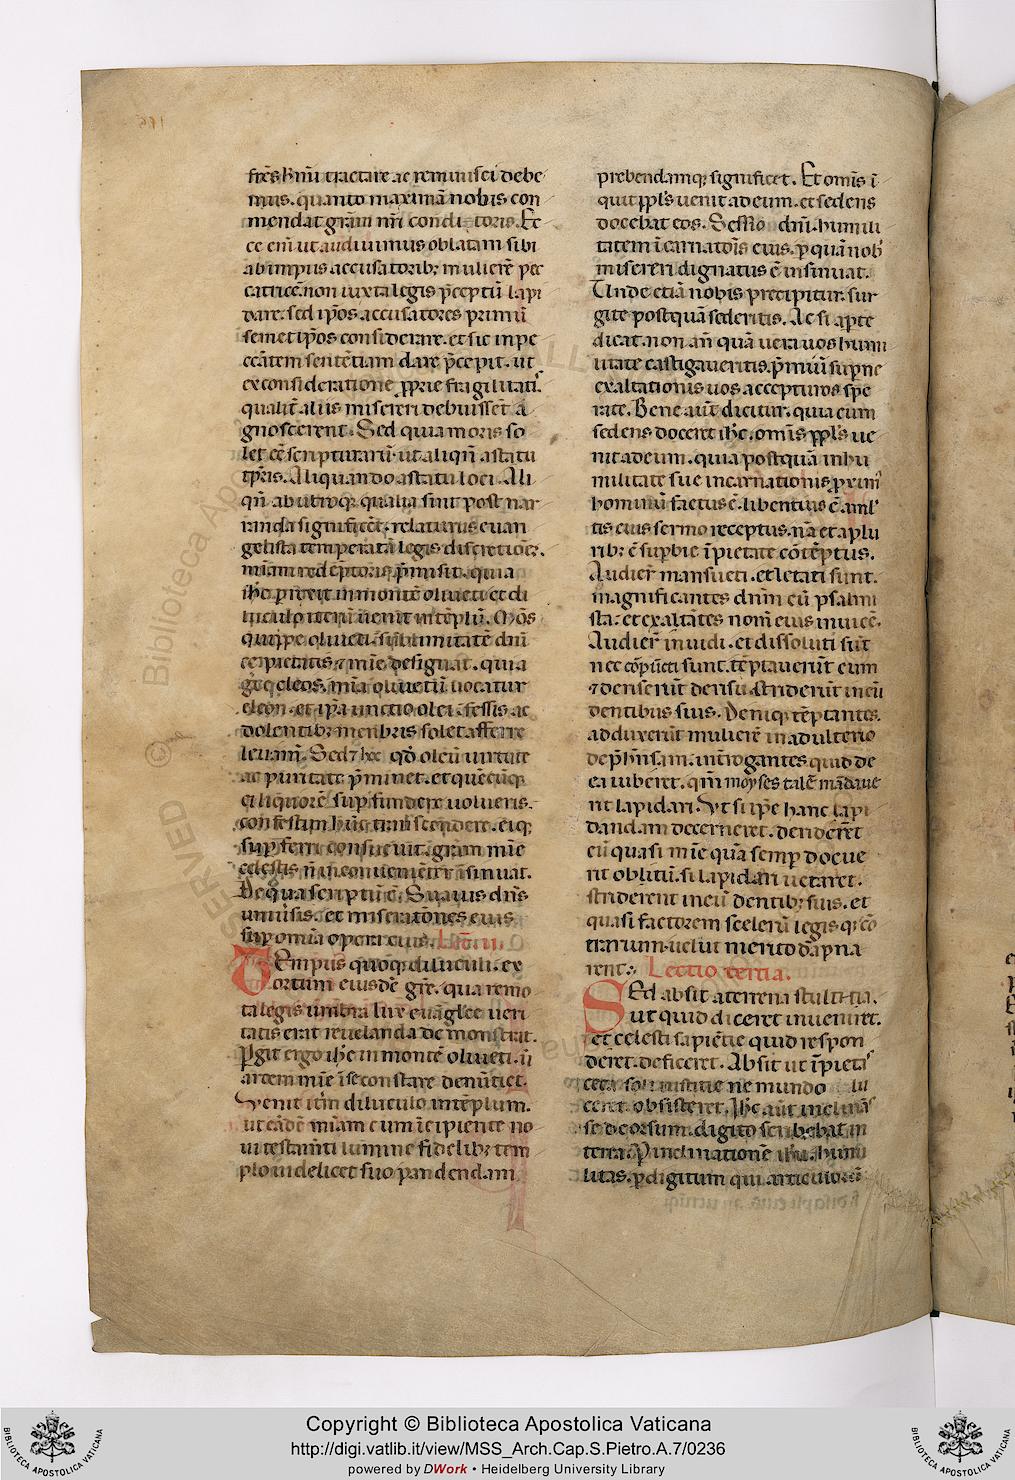 fr̄es k̄mi tractare ac reminisci debe
mus. quanto maximā nobis con
mendat gr̄am nr̄i conditoris. Ec
ce eni ut audivimus oblatam sibi
ab impiis accusatorib; mulierē pec
catricē. non iuxta legis p̄ceptū lapi
dare. sed ip̄os accusatores primū
semet ip̄os considerare. et sic in pec
cātem sentētiam dare p̄cepit. ut
ex consideratione p̄prie fragilitatis
qualit̄ aliis misereri debuissēt a
gnoscerent. Sed quia moris so
let ēē scripturarū. ut aliqn̄ a statu
tp̄ris. Aliquando a statu loci. Ali
qn̄ ab utroq; qualia sint post nar
randa significēt. relaturus evan
gelista temperatā legis discretionē.
mīam redēptoris p̄misit. quia
ih̄c perrexit in montē oliveti. et di
luculo iterū venit in tēplū. Mōs
quippe oliveti. sublimitatē dn̄i
ce pietatis ⁊ mīe designat. quia
grece oleos. mīa olivetū vocatur
eleon. et ip̄a unctio olei. fessis ac
dolentib; menbris solet afferre
levam̄. Sed ⁊ hec qd̄ oleū virtute
ac puritate p̄minet. et quēcūq;
ei liquorē sup̄fundere volueris.
confestim hūc transcendere. eiq;
sup̄ferri consuevit. gram mīe
celestis n̄ inconvenient̄ īsinuat.
De qua scriptū ē. Suavis dn̄s
universis. et miserationes eius
sup̄ omīa opera eius. Lectio ii.
Tempus quoq; diluculi. ex
ortum eiusdē gr̄e. qua remo
ta legis umbra lux evāglice veri
tatis erat revelanda demonstrat.
P̄git ergo ih̄c in montē oliveti. ut
artem mīe ī se constare denūtiet.
Venit itm̄ diluculo in tēplum.
ut eādē mīam cum īcipiente no
vi testam̄ti lumine fidelib; tem
plo videlicet suo pandendam
prebendamq; significet. Et omīs ī
quit pp̄ls venit ad eum. et sedens
docebat eos. Sessio dn̄i. humili
tatem īcarnatiōis eius. p̄ quā nob̄
misereri dignatus ē insinuat.
Unde etiā nobis precipitur. sur
gite postquā sederitis. Ac si apte
dicat. non an̄ quā vera vos humi
litate castigaveritis. p̄miū supne
exaltationis vos accepturos spe
rate. Bene aūt dicitur. quia cum
sedens doceret ih̄c. omīs pp̄ls ve
nit ad eum. quia postquā in hu
militate sue incarnationis proxim̄
hominū factus ē. libentius ē a ml̄
tis eius sermo receptus. nā et a plu
rib; ē sup̄bie īpietate cōtēptus.
Audier̄ mansueti. et letati sunt.
magnificantes dn̄m cū psalmi
sta. et exaltātes nom̄ eius invicē.
Audier̄ invidi. et dissoluti sūt
nec cōpūcti sunt. tēptaverūt eum
⁊ deriserūt derisu. striderūt in eū
dentibus suis. Deniq; tēptantes.
adduxerūt mulierē in adulterio
dep̄hensam. int̄rogantes quid de
ea iuberet. qm̄ moyses talē mādave
rit lapidari. Ut si ip̄e hanc lapi
dandam decerneret. deriderēt
eū quasi mīe quā semp̄ docue
rit oblitū. si lapidari vetaret.
striderent in eū dentib; suis. et
quasi factorem scelerū legisq; cō
trarium. velut merito dāpna
rent. Lectio tertia.
Sed absit a terrena stultitia.
ut quid diceret inveniret.
et celesti sapiētie quid respon
deret. deficeret. Absit ut īpietas
ceca. sol iustitie ne mundo lu
ceret. obsisteret. Ih̄c aūt inclinās
se deorsum. digito scribebat in
terra. P̄ inclinationē ih̄u. humi
litas. p̄ digitum qui articulorū
Copyright © Biblioteca Apostolica Vaticana
http://digi.vatlib.it/view/MSS_Arch.Cap.S.Pietro.A.7/0236
powered by DWork • Heidelberg University Library